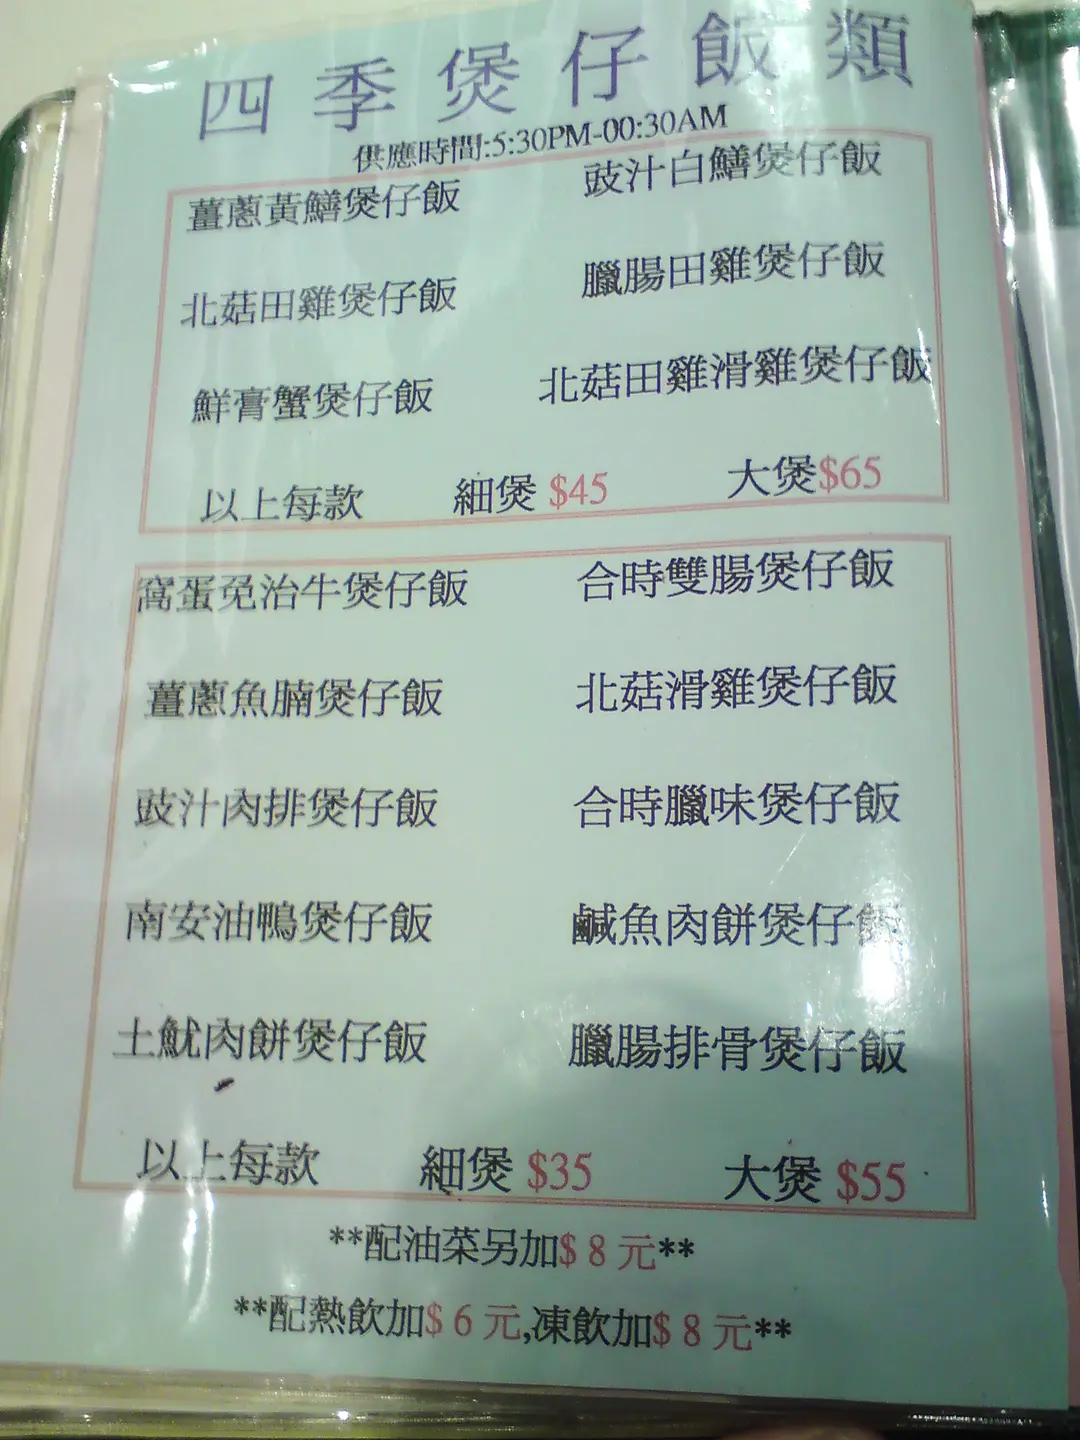 四季煲仔飯類
供應時間:5:30PM-00:30AM
薑蔥黃鱔煲仔飯 豉汁白鱔煲仔飯
北菇田雞煲仔飯 臘腸田雞煲仔飯
鮮膏蟹煲仔飯 北菇田雞滑雞煲仔飯
以上每款 細煲 $45 大煲$65
窩蛋免治牛煲仔飯 合時雙腸煲仔飯
薑蔥魚腩煲仔飯 北菇滑雞煲仔飯
豉汁肉排煲仔飯 合時臘味煲仔飯
南安油鴨煲仔飯 鹹魚肉餅煲仔飯
土魷肉餅煲仔飯 臘腸排骨煲仔飯
以上每款 細煲 $35 大煲 $55
**配油菜另加$ 8 元**
**配熱飲加$ 6 元,凍飲加$ 8 元**